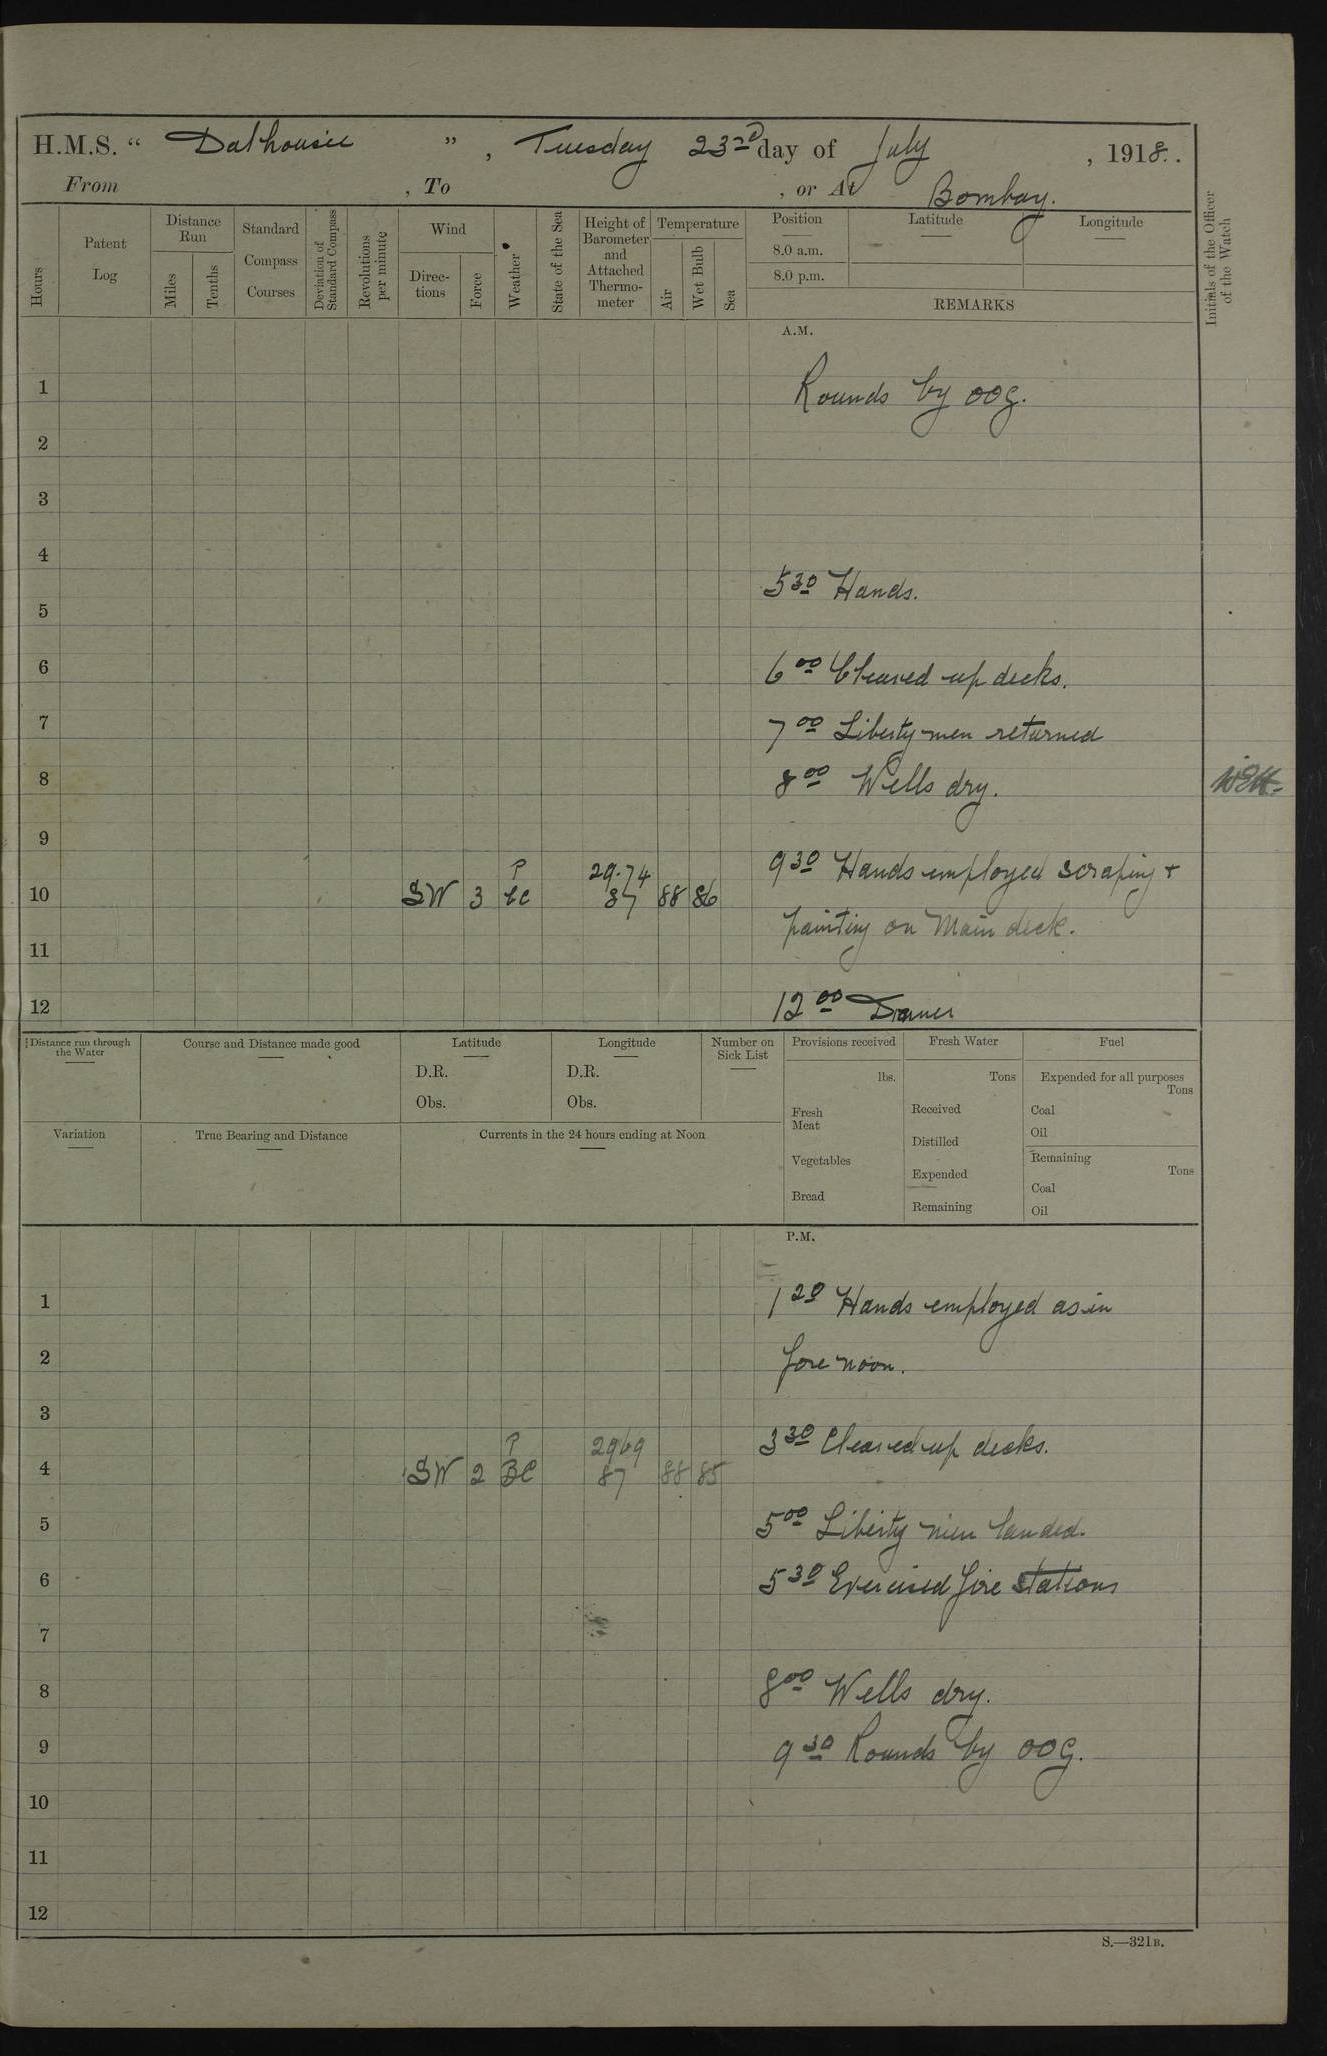 H.M.S. “ Dalhousie ” , Tuesday 23rd day of July , 1918.
From , To , or At Bombay.
Hours
Patent Log
Distance Run
Miles
Tenths
Standard Compass Courses
Deviation of Standard Compass
Revolutions per minute
Wind
Directions
Force
Weather
State of the Sea
Height of Barometer and Attached Thermometer
Temperature
Air
Wet Bulb
Sea
Position Latitude Longitude
8.0 a.m.
8.0 p.m.
REMARKS
Initials of the Officer of the Watch
A.M.
1 Rounds by OOG.
2
3
4
5 30 Hands.
5
6 6 00 Cleared up decks.
7 7 00 Liberty men returned
8 8 00 Wells dry.
9
P 29.74 9 30 Hands employed scraping +
10 SW 3 bc 87 88 86
painting on Main deck.
11
12 12 00 Dinner
Distance run through the Water
Course and Distance made good
Latitude
D.R.
Obs.
Longitude
D.R.
Obs.
Number on Sick List
Provisions received
lbs.
Fresh Meat
Vegetables
Bread
Fresh Water
Tons
Received
Distilled
Expended
Remaining
Fuel
Expended for all purposes
Tons
Coal
Oil
Remaining
Tons
Coal
Oil
Variation
True Bearing and Distance
Currents in the 24 hours ending at Noon
P.M.
1 1 20 Hands employed as in
2 fore noon.
3
P 2969 3 30 Cleared up decks.
4 SW 2 BC 87 88 85
5 5 00 Liberty men landed.
6 5 30 Exercised fire stations
7
8 8 00 Wells dry.
9 9 30 Rounds by OOG.
10
11
12
S.—321B.